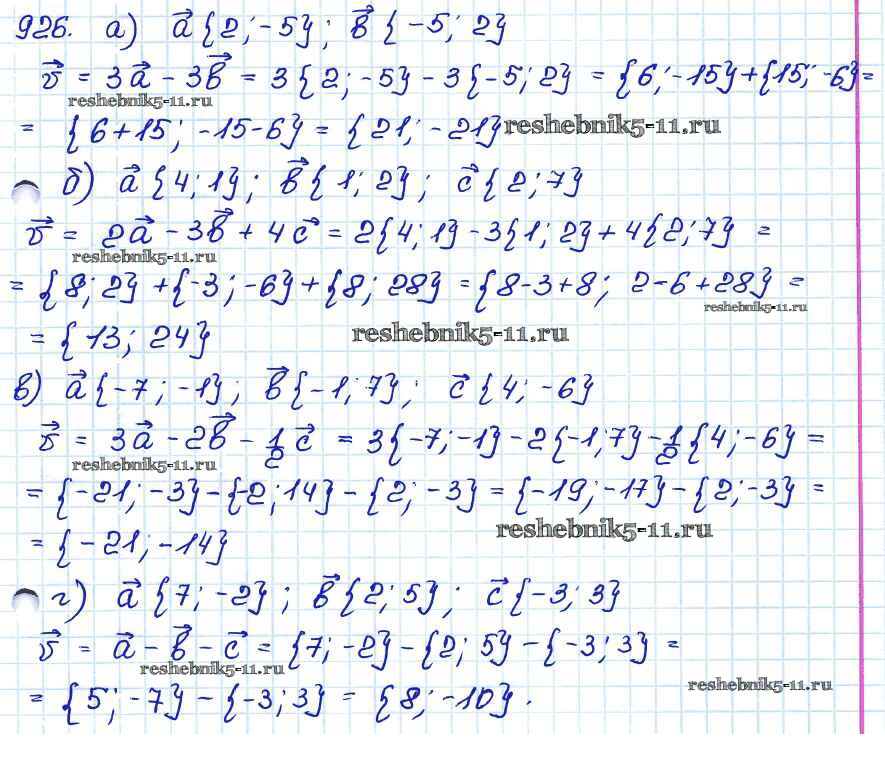 926. а) a⃗ {2; -5}; b⃗ {-5; 2}
v⃗ = 3a⃗ - 3b⃗ = 3{2; -5} - 3{-5; 2} = {6; -15} + {15; -6} =
reshebnik5-11.ru
= {6+15; -15-6} = {21; -21}
reshebnik5-11.ru
б) a⃗ {4; 1}; b⃗ {1; 2}; c⃗ {2; 7}
v⃗ = 2a⃗ - 3b⃗ + 4c⃗ = 2{4; 1} - 3{1; 2} + 4{2; 7} =
reshebnik5-11.ru
= {8; 2} + {-3; -6} + {8; 28} = {8-3+8; 2-6+28} =
reshebnik5-11.ru
= {13; 24}
reshebnik5-11.ru
в) a⃗ {-7; -1}; b⃗ {-1; 7}; c⃗ {4; -6}
v⃗ = 3a⃗ - 2b⃗ - 1/2 c⃗ = 3{-7; -1} - 2{-1; 7} - 1/2 {4; -6} =
reshebnik5-11.ru
= {-21; -3} - {-2; 14} - {2; -3} = {-19; -17} - {2; -3} =
reshebnik5-11.ru
= {-21; -14}
г) a⃗ {7; -2}; b⃗ {2; 5}; c⃗ {-3; 3}
v⃗ = a⃗ - b⃗ - c⃗ = {7; -2} - {2; 5} - {-3; 3} =
reshebnik5-11.ru
reshebnik5-11.ru
= {5; -7} - {-3; 3} = {8; -10}.